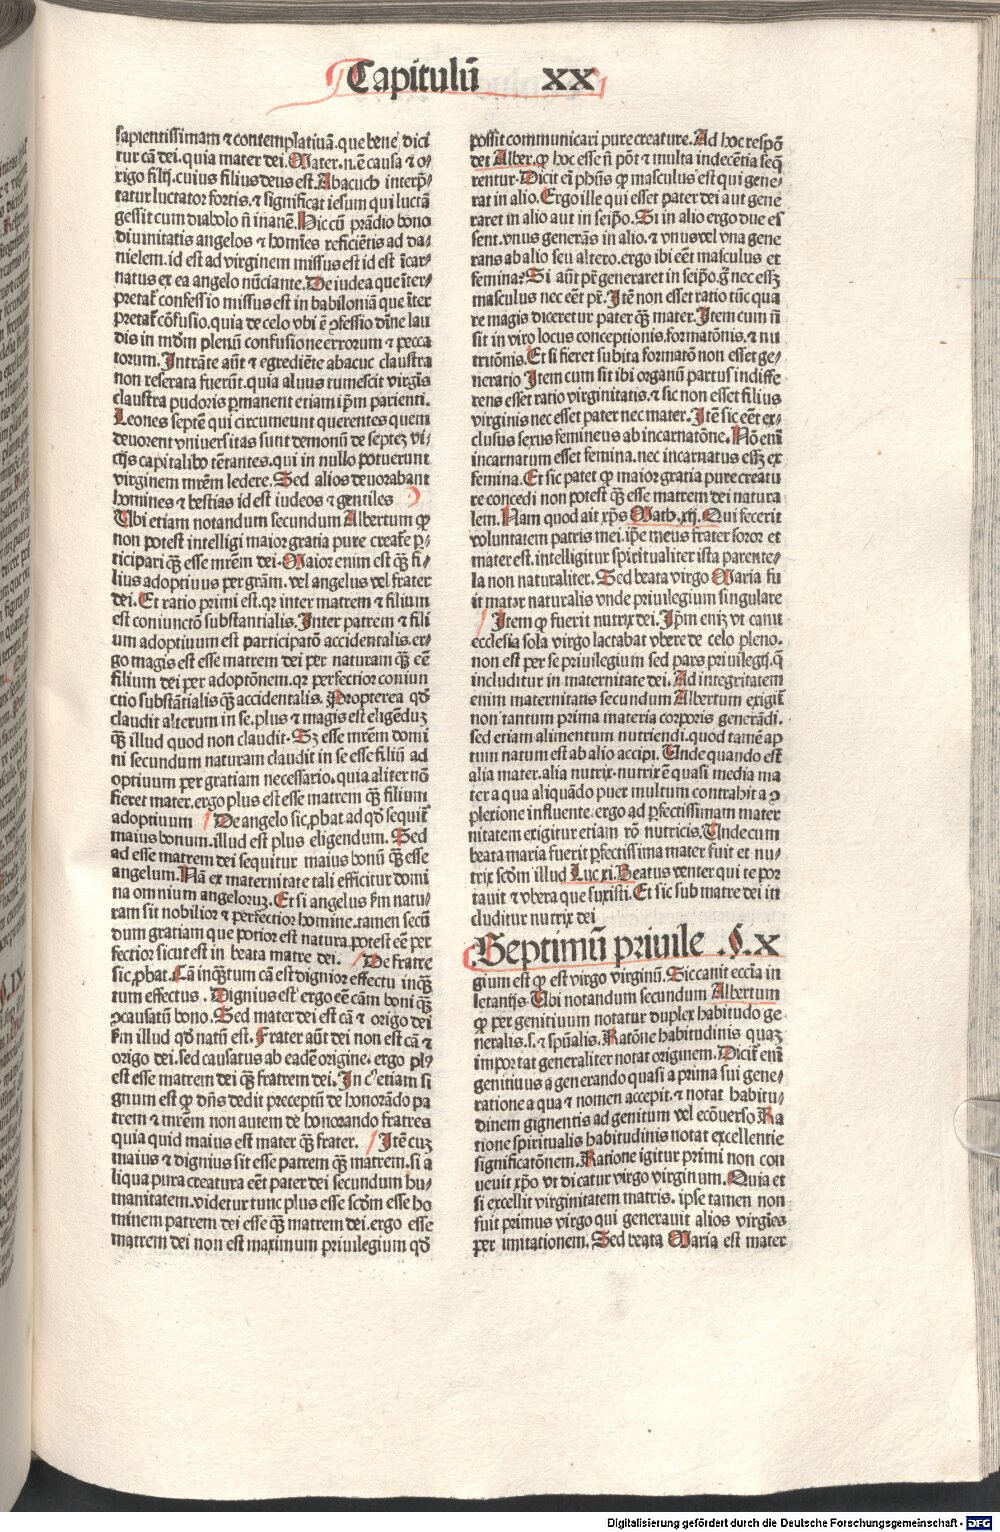 Capitulū XX
sapientissimam ⁊ contemplatiuā.que bene dici
tur cā dei.quia mater dei.Mater.n.ē causa ⁊ o⸗
rigo filij.cuius filius deus est.Abacuch interp̄⸗
tatur luctator fortis.⁊ significat iesum qui luctā
gessit cum diabolo nō inanē.Hic cū prādio bono
diuinitatis angelos ⁊ homīes reficiētis ad da⸗
nielem.id est ad virginem missus est id est īcar⸗
natus ex ea angelo nūciante.De iudea que īter⸗
pretat̄ confessio missus est in babiloniā que īter
pretat̄ cōfusio.quia de celo vbi ē ꝯfessio diīne lau
dis in mūdm plenū confusione errorum ⁊ pecca
torum.Intrāte aūt ⁊ egrediēte abacuc claustra
non reserata fuerūt.quia aluus tumescit virgīs
claustra pudoris ꝑmanent etiam ip̄m parienti.
Leones septē qui circumeunt querentes quem
deuorent vniuersitas sunt demonū de septeꝫ vi⸗
cijs capitalibꝰ tētantes.qui in nullo potuerunt
virginem mrēm ledere.Sed alios deuorabant
homines ⁊ bestias id est iudeos ⁊ gentiles
Ubi etiam notandum secundum Albertum ꝙ
non potest intelligi maior gratia pure creat̄e ꝑ⸗
ticipari qꝫ̄ esse mrēm dei.Maior enim est qꝫ̄ fi⸗
lius adoptiuus per grām.vel angelus vel frater
dei.Et ratio primi est.qꝛ inter matrem ⁊ filium
est coniunctō substantialis.Inter patrem ⁊ fili
um adoptiuum est participatō accidentalis.er⸗
go magis est esse matrem dei per naturam qꝫ̄ eē
filium dei per adoptōnem.qꝛ perfectior coniun
ctio substātialis qꝫ̄ accidentalis.Propterea qd̄
claudit alterum in se.plus ⁊ magis est eligēduꝫ
qꝫ̄ illud quod non claudit.Sꝫ esse mrēm domi
ni secundum naturam claudit in se esse filiū ad
optiuum per gratiam necessario.quia aliter nō
fieret mater.ergo plus est esse matrem qꝫ̄ filium
adoptiuum De angelo sic ꝓbat ad qd̄ sequit̄
maius bonum.illud est plus eligendum.Sed
ad esse matrem dei sequitur maius bonū qꝫ̄ esse
angelum.Nā ex maternitate tali efficitur domi
na omnium angeloruꝫ.Et si angelus ẜm natu⸗
ram sit nobilior ⁊ perfectior homine.tamen secū
dum gratiam que potior est natura.potest eē per
fectior sicut est in beata matre dei. De fratre
sic ꝓbat.Cā inqꝫ̄tum cā est dignior effectu inqꝫ̄
tum effectus.Dignius est ergo eē cām boni qꝫ̄
ꝯcausatū bono.Sed mater dei est cā ⁊ origo dei
ẜm illud qd̄ natū est.Frater aūt dei non est cā ⁊
origo dei.sed causatus ab eadē origine.ergo plꝰ
est esse matrem dei qꝫ̄ fratrem dei.In cꝰ etiam si
gnum est ꝙ dn̄s dedit preceptū de honorādo pa
trem ⁊ mrēm non autem de honorando fratres
quia quid maius est mater qꝫ̄ frater. Itē cuꝫ
maius ⁊ dignius sit esse patrem qꝫ̄ matrem.si a
liqua pura creatura eēt pater dei secundum hu⸗
manitatem.videtur tunc plus esse scdm esse ho
minem patrem dei esse qꝫ̄ matrem dei.ergo esse
matrem dei non est maximum priuilegium qd̄
possit communicari pure creature.Ad hoc respō
det Alber.ꝙ hoc esse nō pōt ⁊ multa indecētia seq̄
rentur.Dicit eī phūs ꝙ masculus est qui gene⸗
rat in alio.Ergo ille qui esset pater dei aut gene
raret in alio aut in seip̄o.Si in alio ergo due es
sent.vnus generās in alio.⁊ vnus vel vna gene
rans ab alio seu altero.ergo ibi eēt masculus et
femina.Si aūt pr̄ generaret in seip̄o.g̊ nec esꝫ
masculus nec eēt pr̄.Itē non esset ratio tūc qua
re magis diceretur pater qꝫ̄ mater.Item cum nō
sit in viro locus conceptionis.formatōnis.⁊ nu
tritōnis.Et si fieret subita formatō non esset ge⸗
neratio Item cum sit ibi organū partus indiffe
rens esset ratio virginitatis.⁊ sic non esset filius
virginis nec esset pater nec mater.Itē sic eēt ex⸗
clusus sexus femineus ab incarnatōne.Nō enī
incarnatum esset femina.nec incarnatus esꝫ ex
femina.Et sic patet ꝙ maior gratia pure creatu
re concedi non potest qꝫ̄ esse matrem dei natura
lem.Nam quod ait xp̄s Math.xij.Qui fecerit
voluntatem patris mei.ip̄e meus frater soror et
mater est.intelligitur spiritualiter ista parente⸗
la non naturaliter.Sed beata virgo Maria fu
it mater naturalis vnde priuilegium singulare
Item ꝙ fuerit nutrix dei.Ip̄m eniꝫ vt canit
ecclesia sola virgo lactabat vbere de celo pleno.
non est per se priuilegium sed pars priuilegij.q̄
includitur in maternitate dei.Ad integritatem
enim maternitatis secundum Albertum exigit̄
non tantum prima materia corporis generādi.
sed etiam alimentum nutriendi.quod tamē ap
tum natum est ab alio accipi.Unde quando est
alia mater.alia nutrix.nutrix ē quasi media ma
ter a qua aliquādo puer multum contrahit a ꝯ
plexione influente.ergo ad ꝑfectissimam mater
nitatem exigitur etiam rō nutricis.Unde cum
beata maria fuerit ꝑfectissima mater fuit et nu⸗
trix scdm illud Luc xi.Beatus venter qui te por
tauit ⁊ vbera que suxisti.Et sic sub matre dei in
cluditur nutrix dei
Septimū priuile .§.X
gium est ꝙ est virgo virginū.Sic canit ecclia in
letanijs.Ubi notandum secundum Albertum
ꝙ per genitiuum notatur duplex habitudo ge⸗
neralis.s.⁊ spūalis.Ratōne habitudinis quaꝫ
importat generaliter notat originem.Dicit̄ enī
genitiuus a generando quasi a prima sui gene⸗
ratione a qua ⁊ nomen accepit.⁊ notat habitu⸗
dinem gignentis ad genitum vel ecōuerso Ra
tione spiritualis habitudinis notat excellentie
significatōnem.Ratione igitur primi non con
ueuit xp̄o vt dicatur virgo virginum.Quia et
si excellit virginitatem matris.ipse tamen non
fuit primus virgo qui generauit alios virgīes
per imitationem.Sed beata Maria est mater
Digitalisierung gefördert durch die Deutsche Forschungsgemeinschaft - DFG